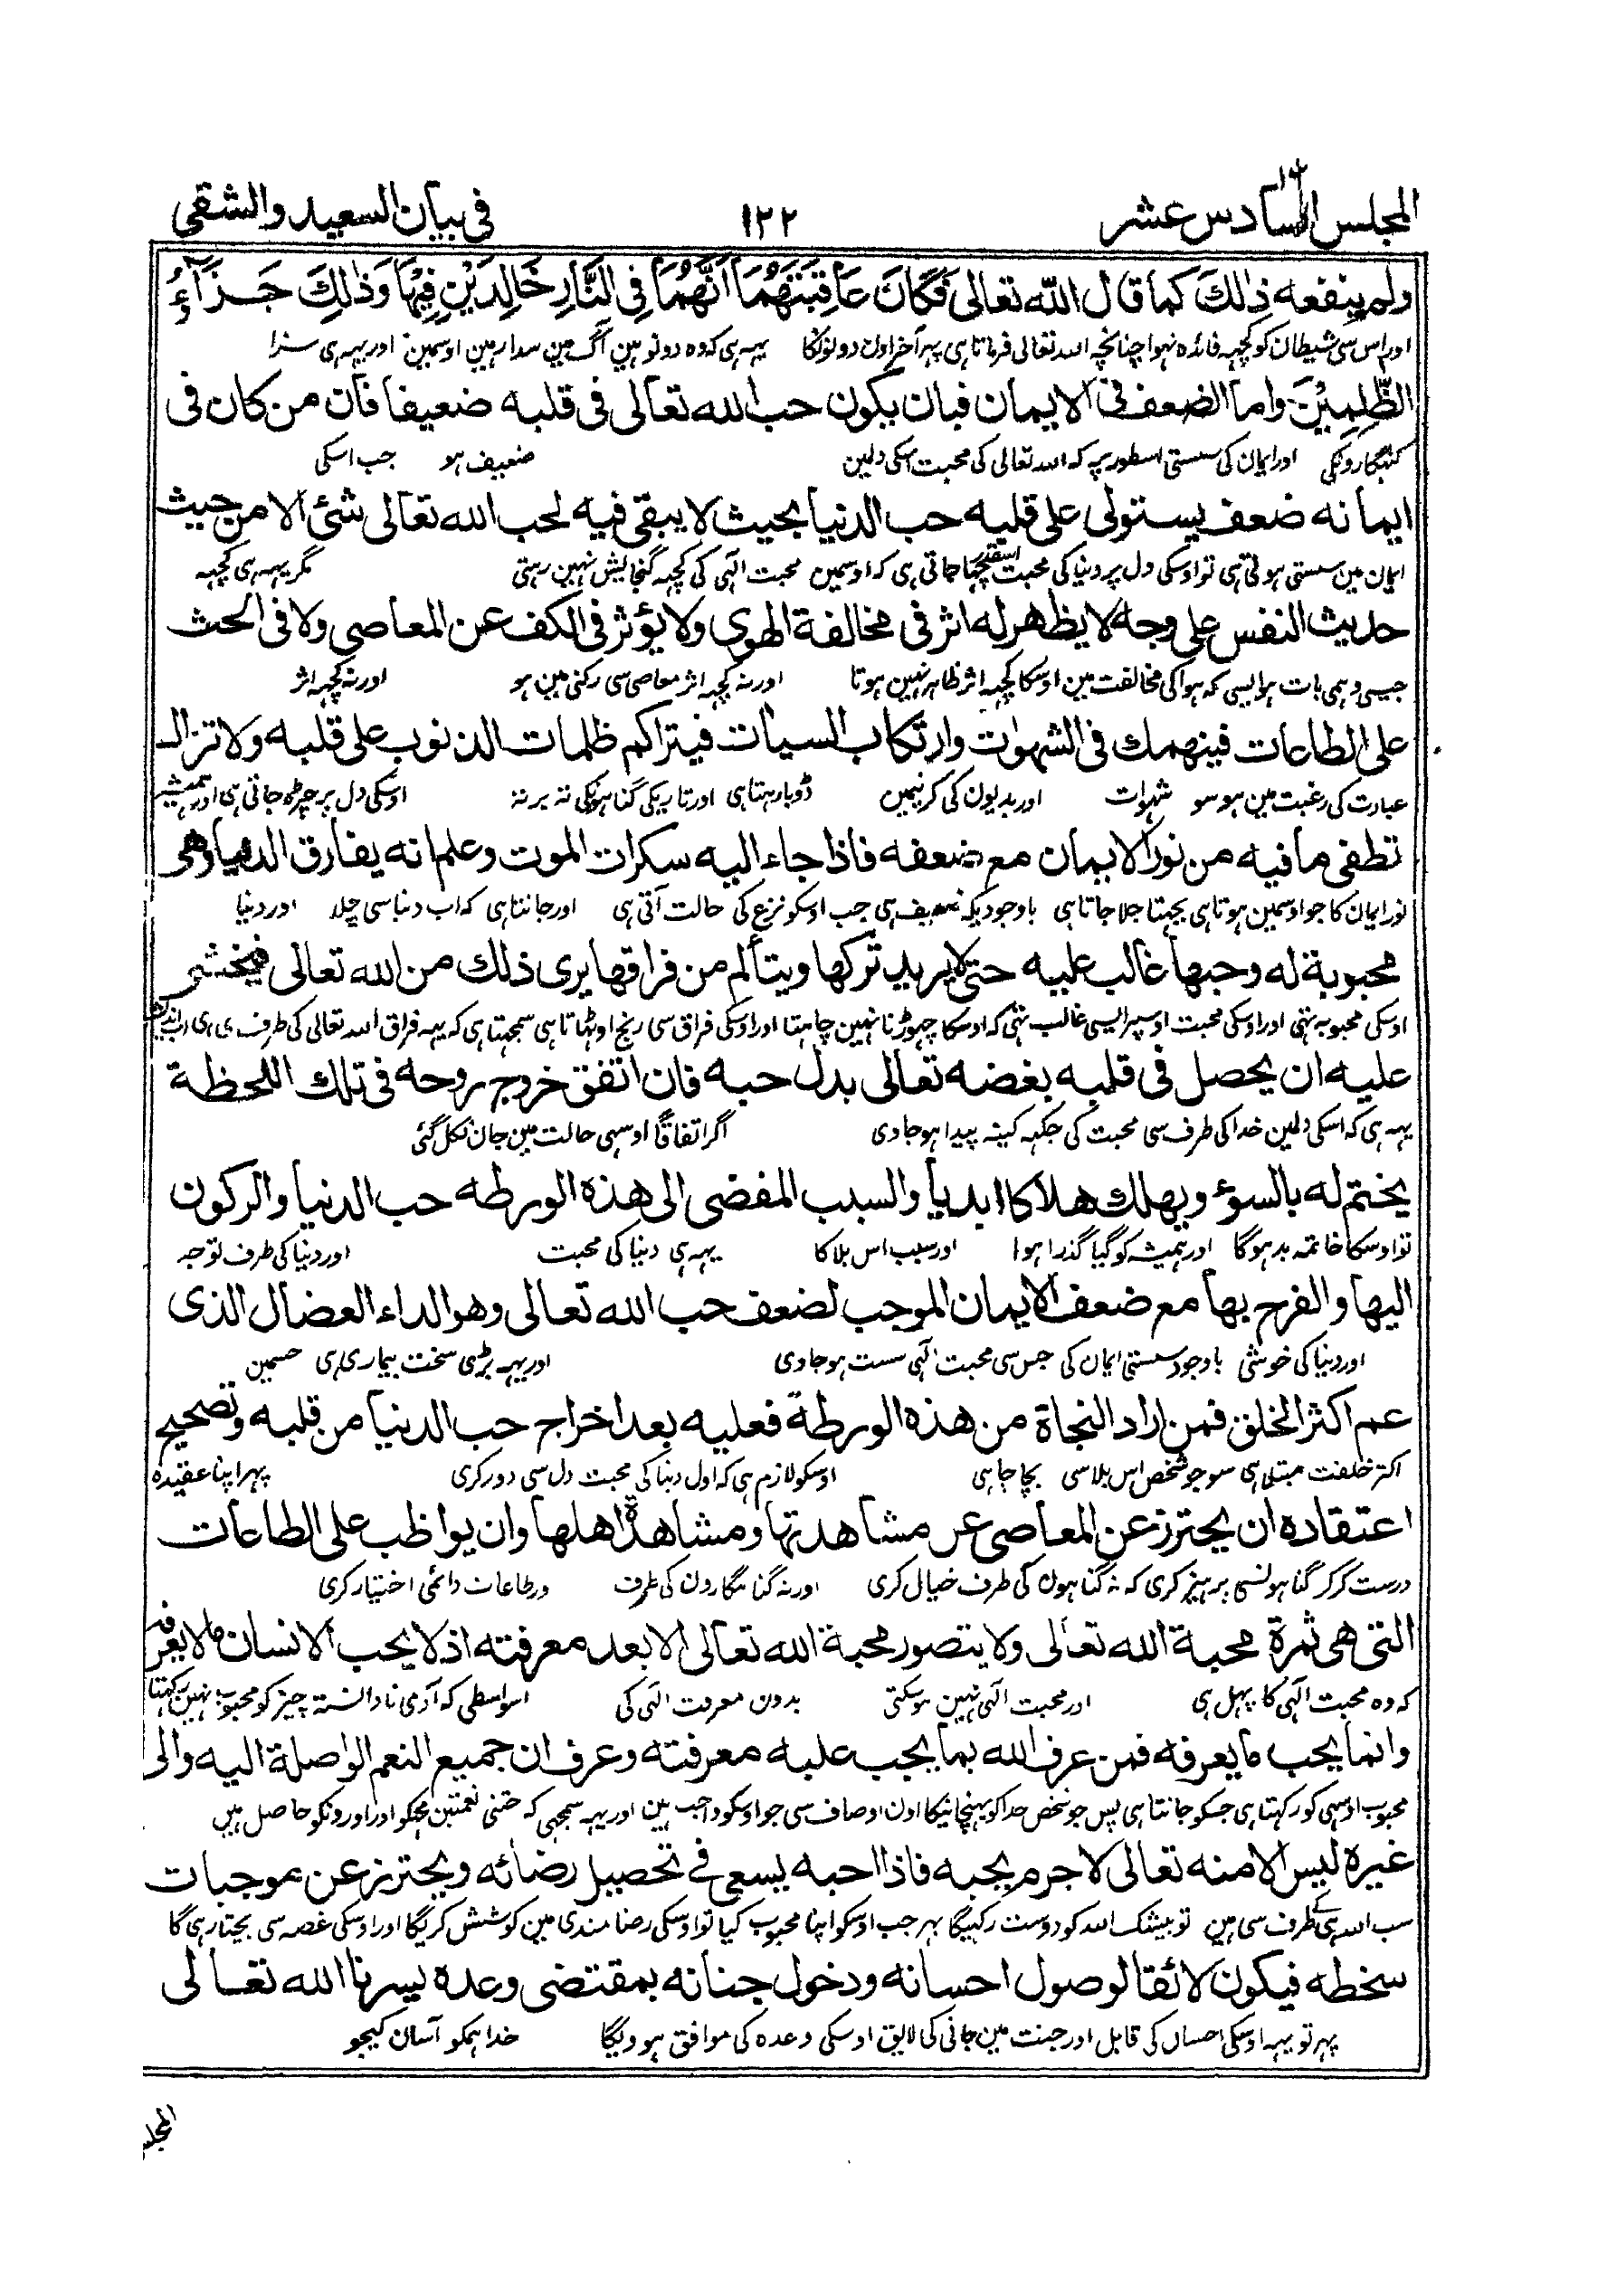 المجلس السادس عشر ١٢٢ فى بيان السعيد والشقى
ولم ينفعه ذٰلكَ كما قال اللّٰه تعالى فَكَانَ عَاقِبَتَهُمَا أَنَّهُمَا فِى النَّارِ خَالِدَيْنِ فِيْهَا وَذٰلِكَ جَـزَآءُ
اور اس سی شیطان کو کچہہ فائدہ نہوا چنانچہ اللہ تعالی فرماتا ہی پہر آخر اون دونونکا یہہ ہی کہ وہ دونو ہین آگ مین سدا رہین اوسمین اور یہہ ہی سزا
الظّٰلِمِيْنَ واما الضعف فى الايمان فبان يكون حب الله تعالى فى قلبه ضعيفا فان من كان فى
گنہگارونکی اور ایمان کی سستی اسطور پر کہ اللہ تعالی کی محبت اسکی دلین ضعیف ہو جب اسکی
ايمانه ضعف يستولى على قلبه حب الدنيا بحيث لا يبقى فيه لحب الله تعالى شئ الا من حيث
ایمان مین سستی ہوتی ہی تو اوسکی دل پر دنیا کی محبت اسقدر چہا جاتی ہی کہ اوسمین محبت الٰہی کی کچہہ گنجایش نہین رہتی مگر یہہ ہی کچہہ
حديث النفس على وجه لا يظهر له اثر فى مخالفة الهوى ولا يؤثر فى الكف عن المعاصى ولا فى الحث
جیسی وہمی بات ہو ایسی کہ ہوا کی مخالفت مین اوسکا کچہہ اثر ظاہر نہین ہوتا اور نہ کچہہ اثر معاصی سی رکنی مین ہو اور نہ کچہہ اثر
على الطاعات فينهمك فى الشهوات وارتكاب السيات فيتراكم ظلمات الذنوب على قلبه ولا تزال
عبادت کی رغبت مین ہو سو شہوات اور بدیون کی کرنیمین ڈوبا رہتا ہی اور تاریکی گناہونکی تہ بر تہ اوسکی دل پر چڑہ جاتی ہی اور ہمیشہ
تطفى ما فيه من نور الايمان مع ضعفه فاذا جاء اليه سكرات الموت وعلم انه يفارق الدنيا وهى
نور ایمان کا جو اوسمین ہوتا ہی بجہتا چلا جاتا ہی باوجودیکہ ضعیف ہی جب اوسکو نزع کی حالت آتی ہی اور جانتا ہی کہ اب دنیا سی چلا اور دنیا
محبوبة له وحبها غالب عليه حتى لا يريد تركها ويتألم من فراقها يرى ذلك من الله تعالى فيخشى
اوسکی محبوبہ تہی اور اوسکی محبت اوسپر ایسی غالب تہی کہ اوسکا چہوڑنا نہین چاہتا اور اوسکی فراق سی رنج اوٹہاتا ہی سمجہتا ہی کہ یہہ فراق اللہ تعالی کی طرف سی ہی اب اندیشہ
عليه ان يحصل فى قلبه بغضه تعالى بدل حبه فان اتفق خروج روحه فى تلك اللحظة
یہہ ہی کہ اسکی دلمین خدا کی طرف سی محبت کی جگہہ کینہ پیدا ہو جاوی اگر اتفاقًا اوسہی حالت مین جان نکل گئی
يختم له بالسوء ويهلك هلاكا ابديا والسبب المفضى الى هذه الورطه حب الدنيا والركون
تو اوسکا خاتمہ بد ہو گا اور ہمیشہ کو گیا گذرا ہوا اور سبب اس بلا کا یہہ ہی دنیا کی محبت اور دنیا کی طرف توجہ
اليها والفرح بها مع ضعف الايمان الموجب لضعف حب الله تعالى وهو الداء العضال الذى
اور دنیا کی خوشی باوجود سستی ایمان کی جس سی محبت الٰہی سست ہو جاوی اور یہہ بڑی سخت بیماری ہی جسمین
عم اكثر الخلق فمن اراد النجاة من هذه الورطة فعليه بعد اخراج حب الدنيا من قلبه وتصحيح
اکثر خلقت مبتلا ہی سو جو شخص اس بلا سی بچا چاہی اوسکو لازم ہی کہ اول دنیا کی محبت دل سی دور کری پہر اپنا عقیدہ
اعتقاده ان يحترز عن المعاصى عن مشاهدتها ومشاهدة اهلها وان يواظب على الطاعات
درست کر کر گناہونسی پرہیز کری کہ نہ گناہون کی طرف خیال کری اور نہ گناہگارون کی طرف ور طاعات دائمی اختیار کری
التى هى ثمرة محبة الله تعالى ولا يتصور محبة الله تعالى الا بعد معرفته اذ لا يحب الانسان ما لا يعرفه
کہ وہ محبت الٰہی کا پہل ہی اور محبت الٰہی نہین ہو سکتی بدون معرفت الٰہی کی اسواسطی کہ آدمی نادانستہ چیز کو محبوب نہین رکہتا
وانما يحب ما يعرفه فمن عرف الله بما يجب عليه معرفته وعرف ان جميع النعم الواصلة اليه والى
محبوب اوسہی کو رکہتا ہی جسکو جانتا ہی پس جو شخص خدا کو پہنچانیگا اون اوصاف سی جو اوسکو واجب ہین اور یہہ سمجہی کہ جتنی نعمتین مجکو اور اورونکو حاصل ہیں
غيره ليس الا منه تعالى لا جرم يحبه فاذا احبه يسعى فى تحصيل رضائه ويحترز عن موجبات
سب اللہ ہی کے طرف سی ہین تو بیشک اللہ کو دوست رکہیگا پہر جب اوسکو اپنا محبوب کیا تو اوسکی رضامندی مین کوشش کریگا اور اوسکی غصہ سی بچتا رہی گا
سخطه فيكون لائقا لوصول احسانه ودخول جنانه بمقتضى وعده يسرنا الله تعالى
پہر تو یہہ اوسکی احسان کی قابل اور جنت مین جانی کی لایق اوسکی وعدہ کی موافق ہوویگا خدا ہمکو آسان کیجو